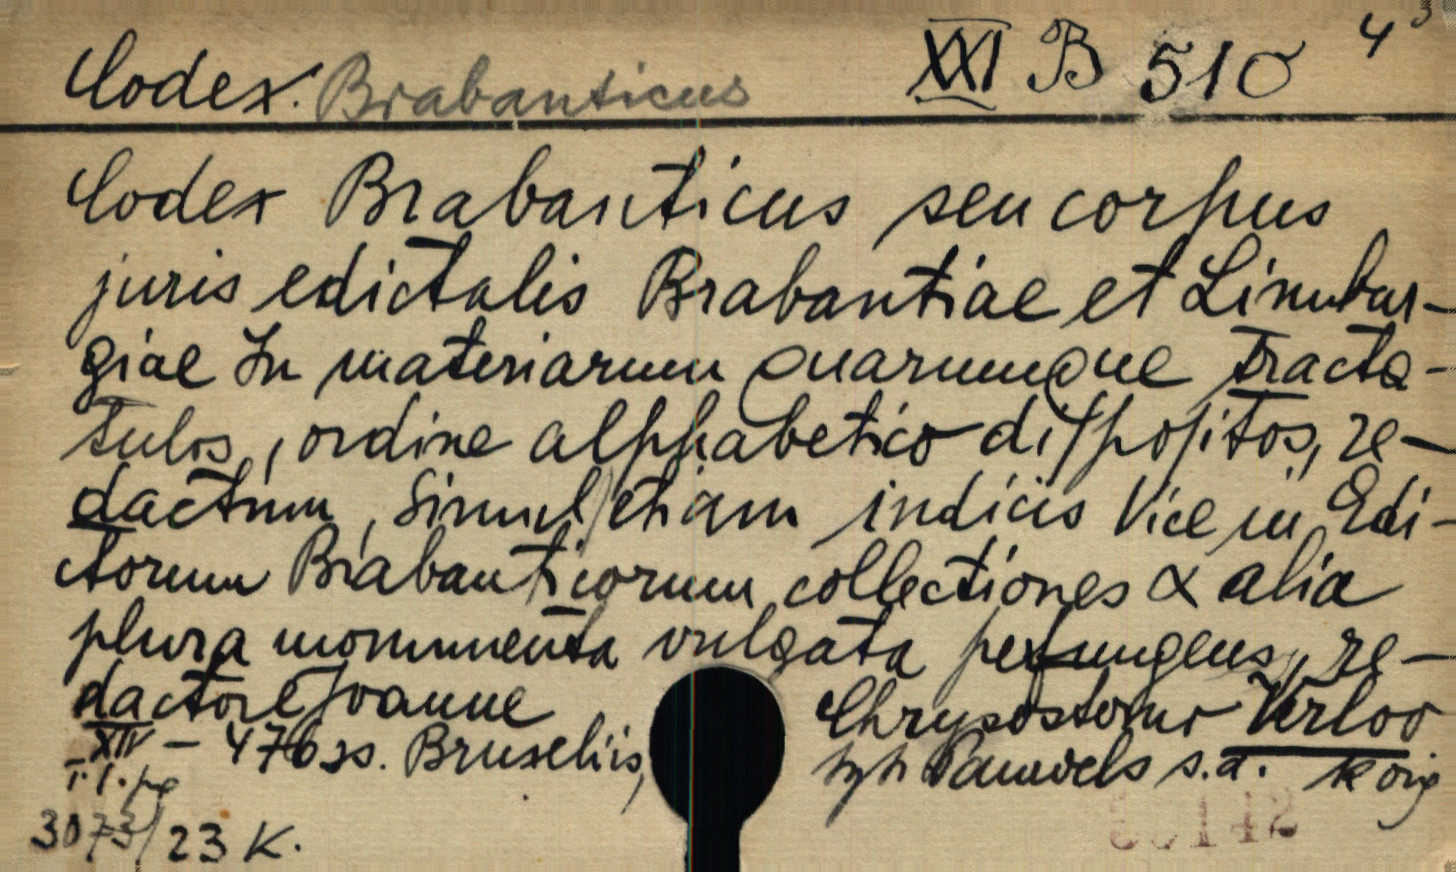 Codex. Brabanticus XXI B 510 4³
Codex Brabanticus seu corpus
juris edictalis Brabantiae et Limbur-
giae In materiarum quarumque tracta-
tulos, ordine alphabetico dispositos, re-
dactum, simul etiam indicis Vice in Edi-
ctorum Brabanticorum collectiones & alia
plura monumenta vulgata perfungens, re-
dactore Joanne Chrysostomo Verloo
XIV - 476 ss. Bruseliis, typ. Pauwels s.a. k oig
T. I. pg
3073/23 K.